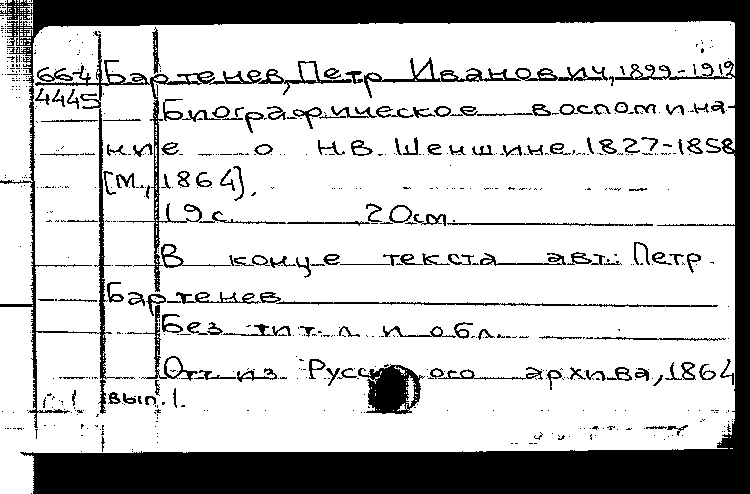 664 Бартенев, Петр Иванович, 1899-1912
4445 Биографическое воспомина-
ние о Н.В. Шеншине. 1827-1858
[М., 1864].
19 с. 20 см.
В конце текста авт.: Петр
Бартенев
Без тит. л. и обл.
Отт. из Русск ого архива, 1864
вып. 1.